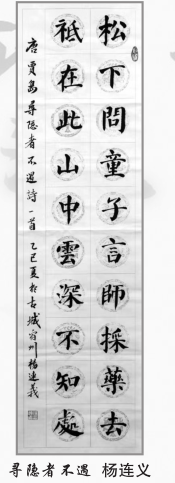 松下問童子言師採藥去
祗在此山中雲深不知處
唐賈島尋隱者不遇詩一首乙巳夏於古城宿州楊連義
寻隐者不遇 杨连义